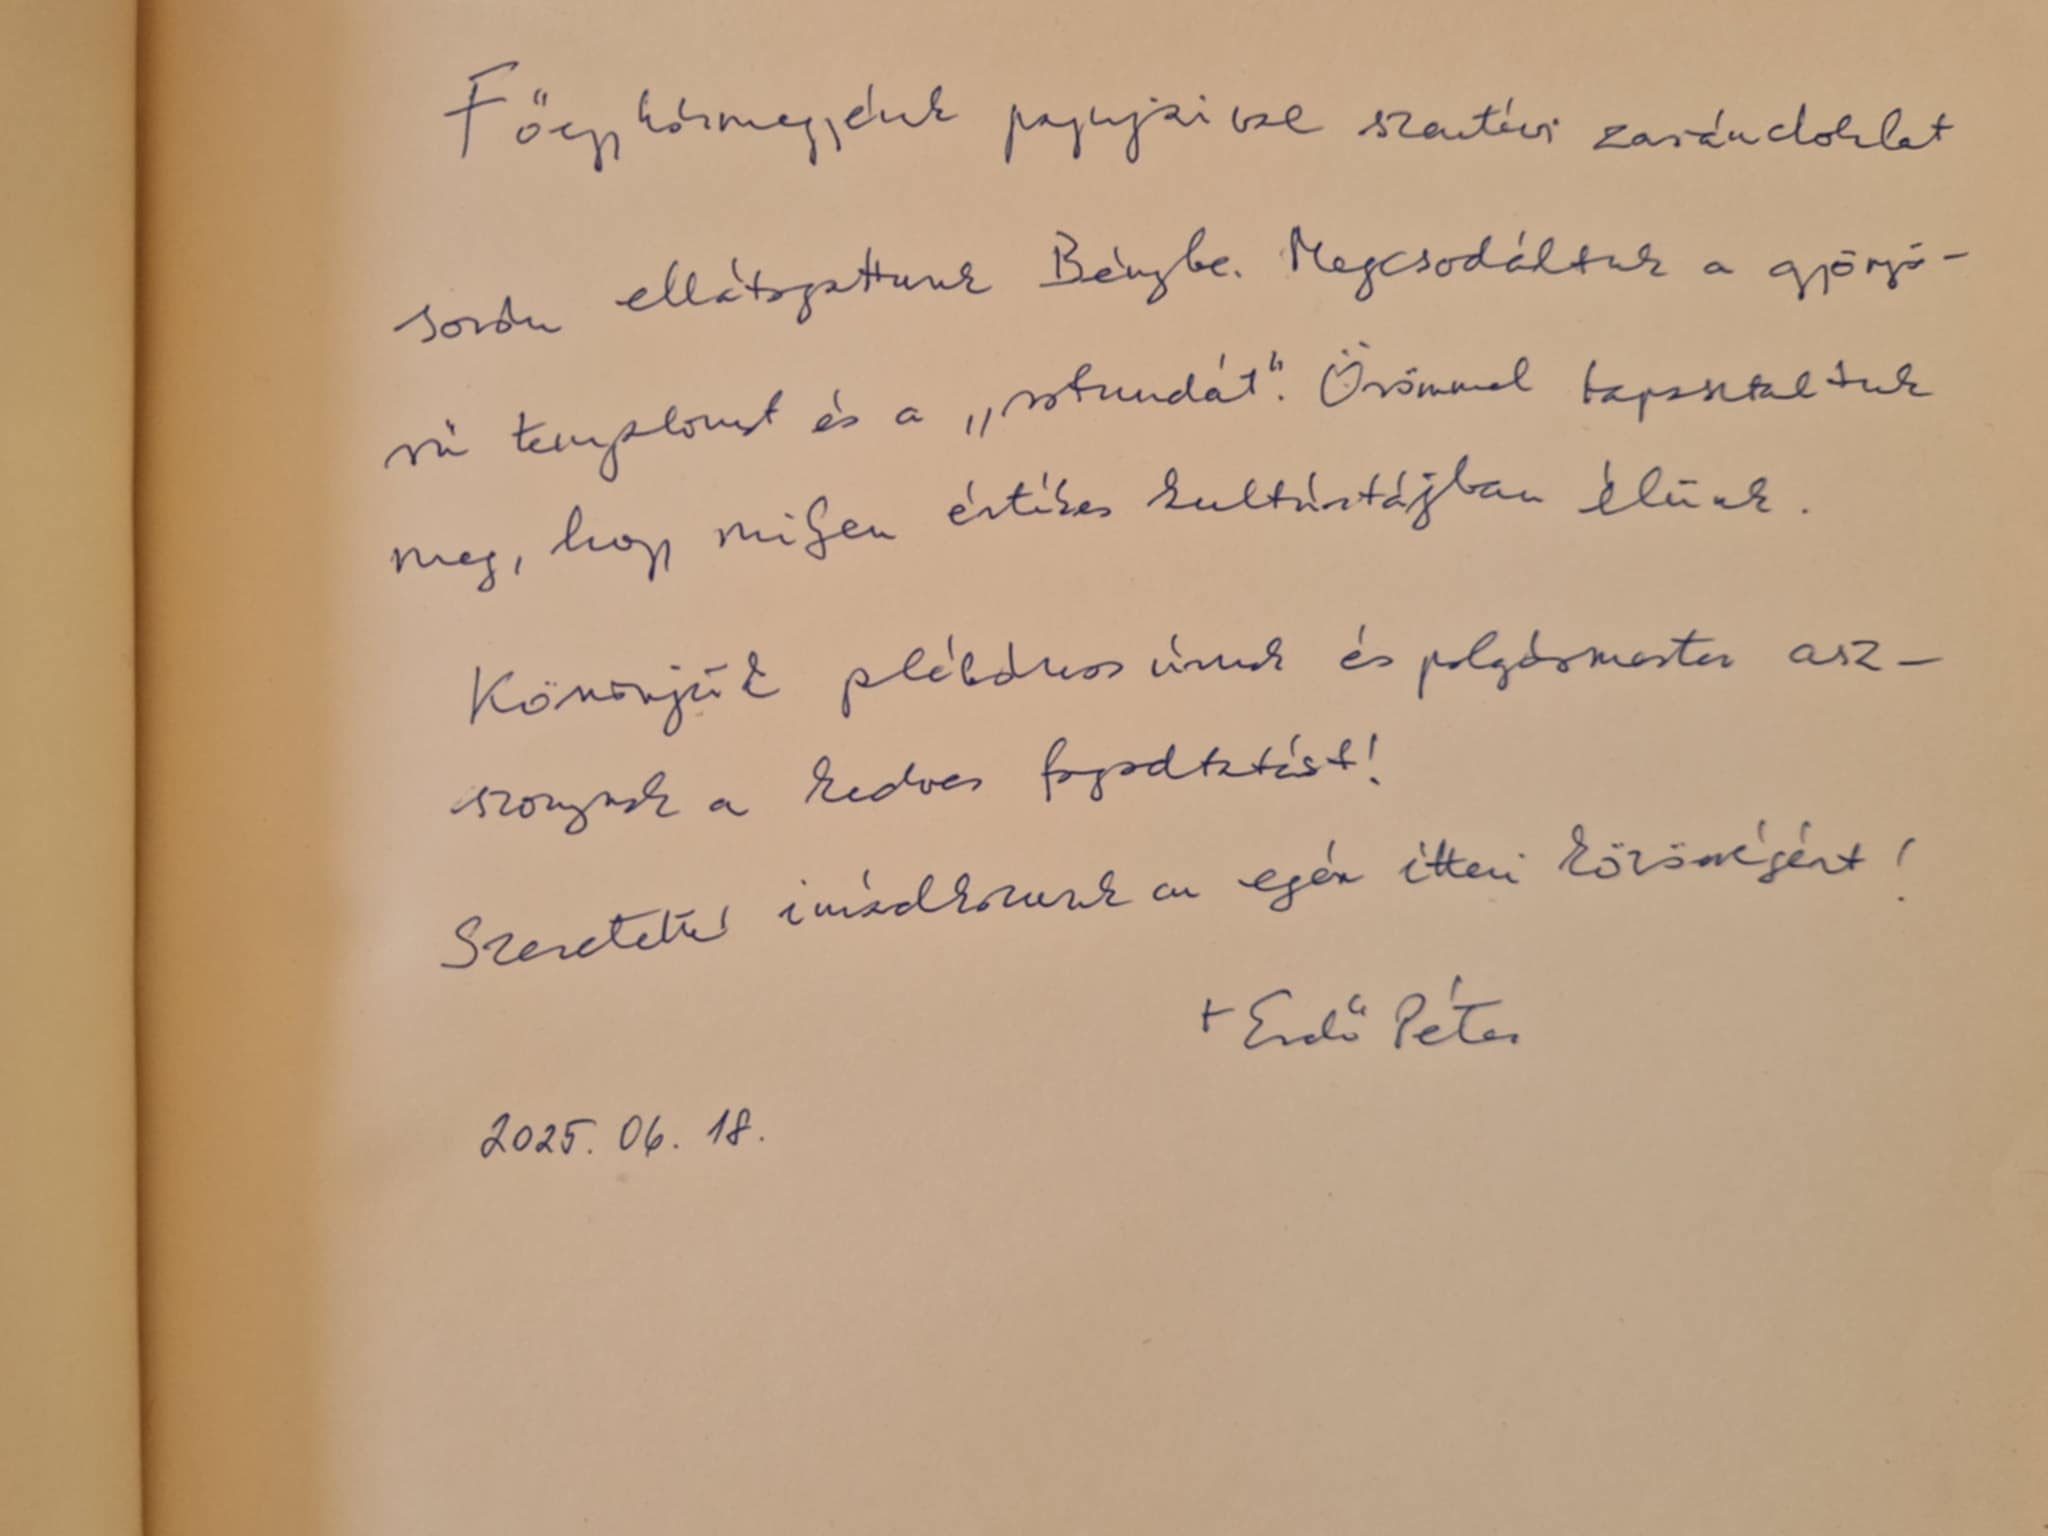 Főegyházmegyénk papjaival szentévi zarándoklat
során ellátogattunk Bénybe. Megcsodáltuk a gyönyö-
rű templomot és a „rotundát". Örömmel tapasztaltuk
meg, hogy milyen értékes kultúrtájban élünk.
Köszönjük plébános úrnak és polgármester asz-
szonynak a kedves fogadtatást!
Szeretettel imádkozunk az egész itteni közösségért!
+ Erdő Péter
2025. 06. 18.